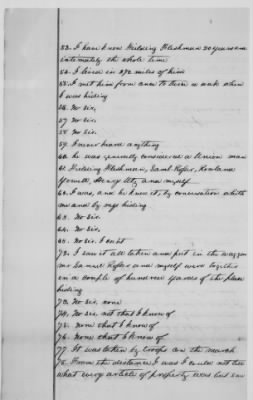 53. I have know Fielding Fleshman 20 years and
intimately the whole time
54. I lived in 2 1/2 miles of him
55. I met him from once to twice a week when
I was hiding
56. No Sir,
57 No Sir
58 No Sir.
59. I never heard anything
60. he was generally considered a Union man
61. Fielding Fleshman, Saml Kofer, Rowland
Henry Utz and myself
62. I was, and he knew it, by conversation while
on and by my hiding
63. No Sir.
64. No Sir.
65. No Sir. I exit
72. I saw it all taken and put in the waggon
Mr Samuel Kofer and myself were together
in a couple of hundred yards of the place
hiding
73. No Sir. none
74. No Sir. not that I know of
75. None that I know of
76. None that I know of
77. It was taken by Troops on the march
78. From the distance I was I could not tell
what every article of property was but saw